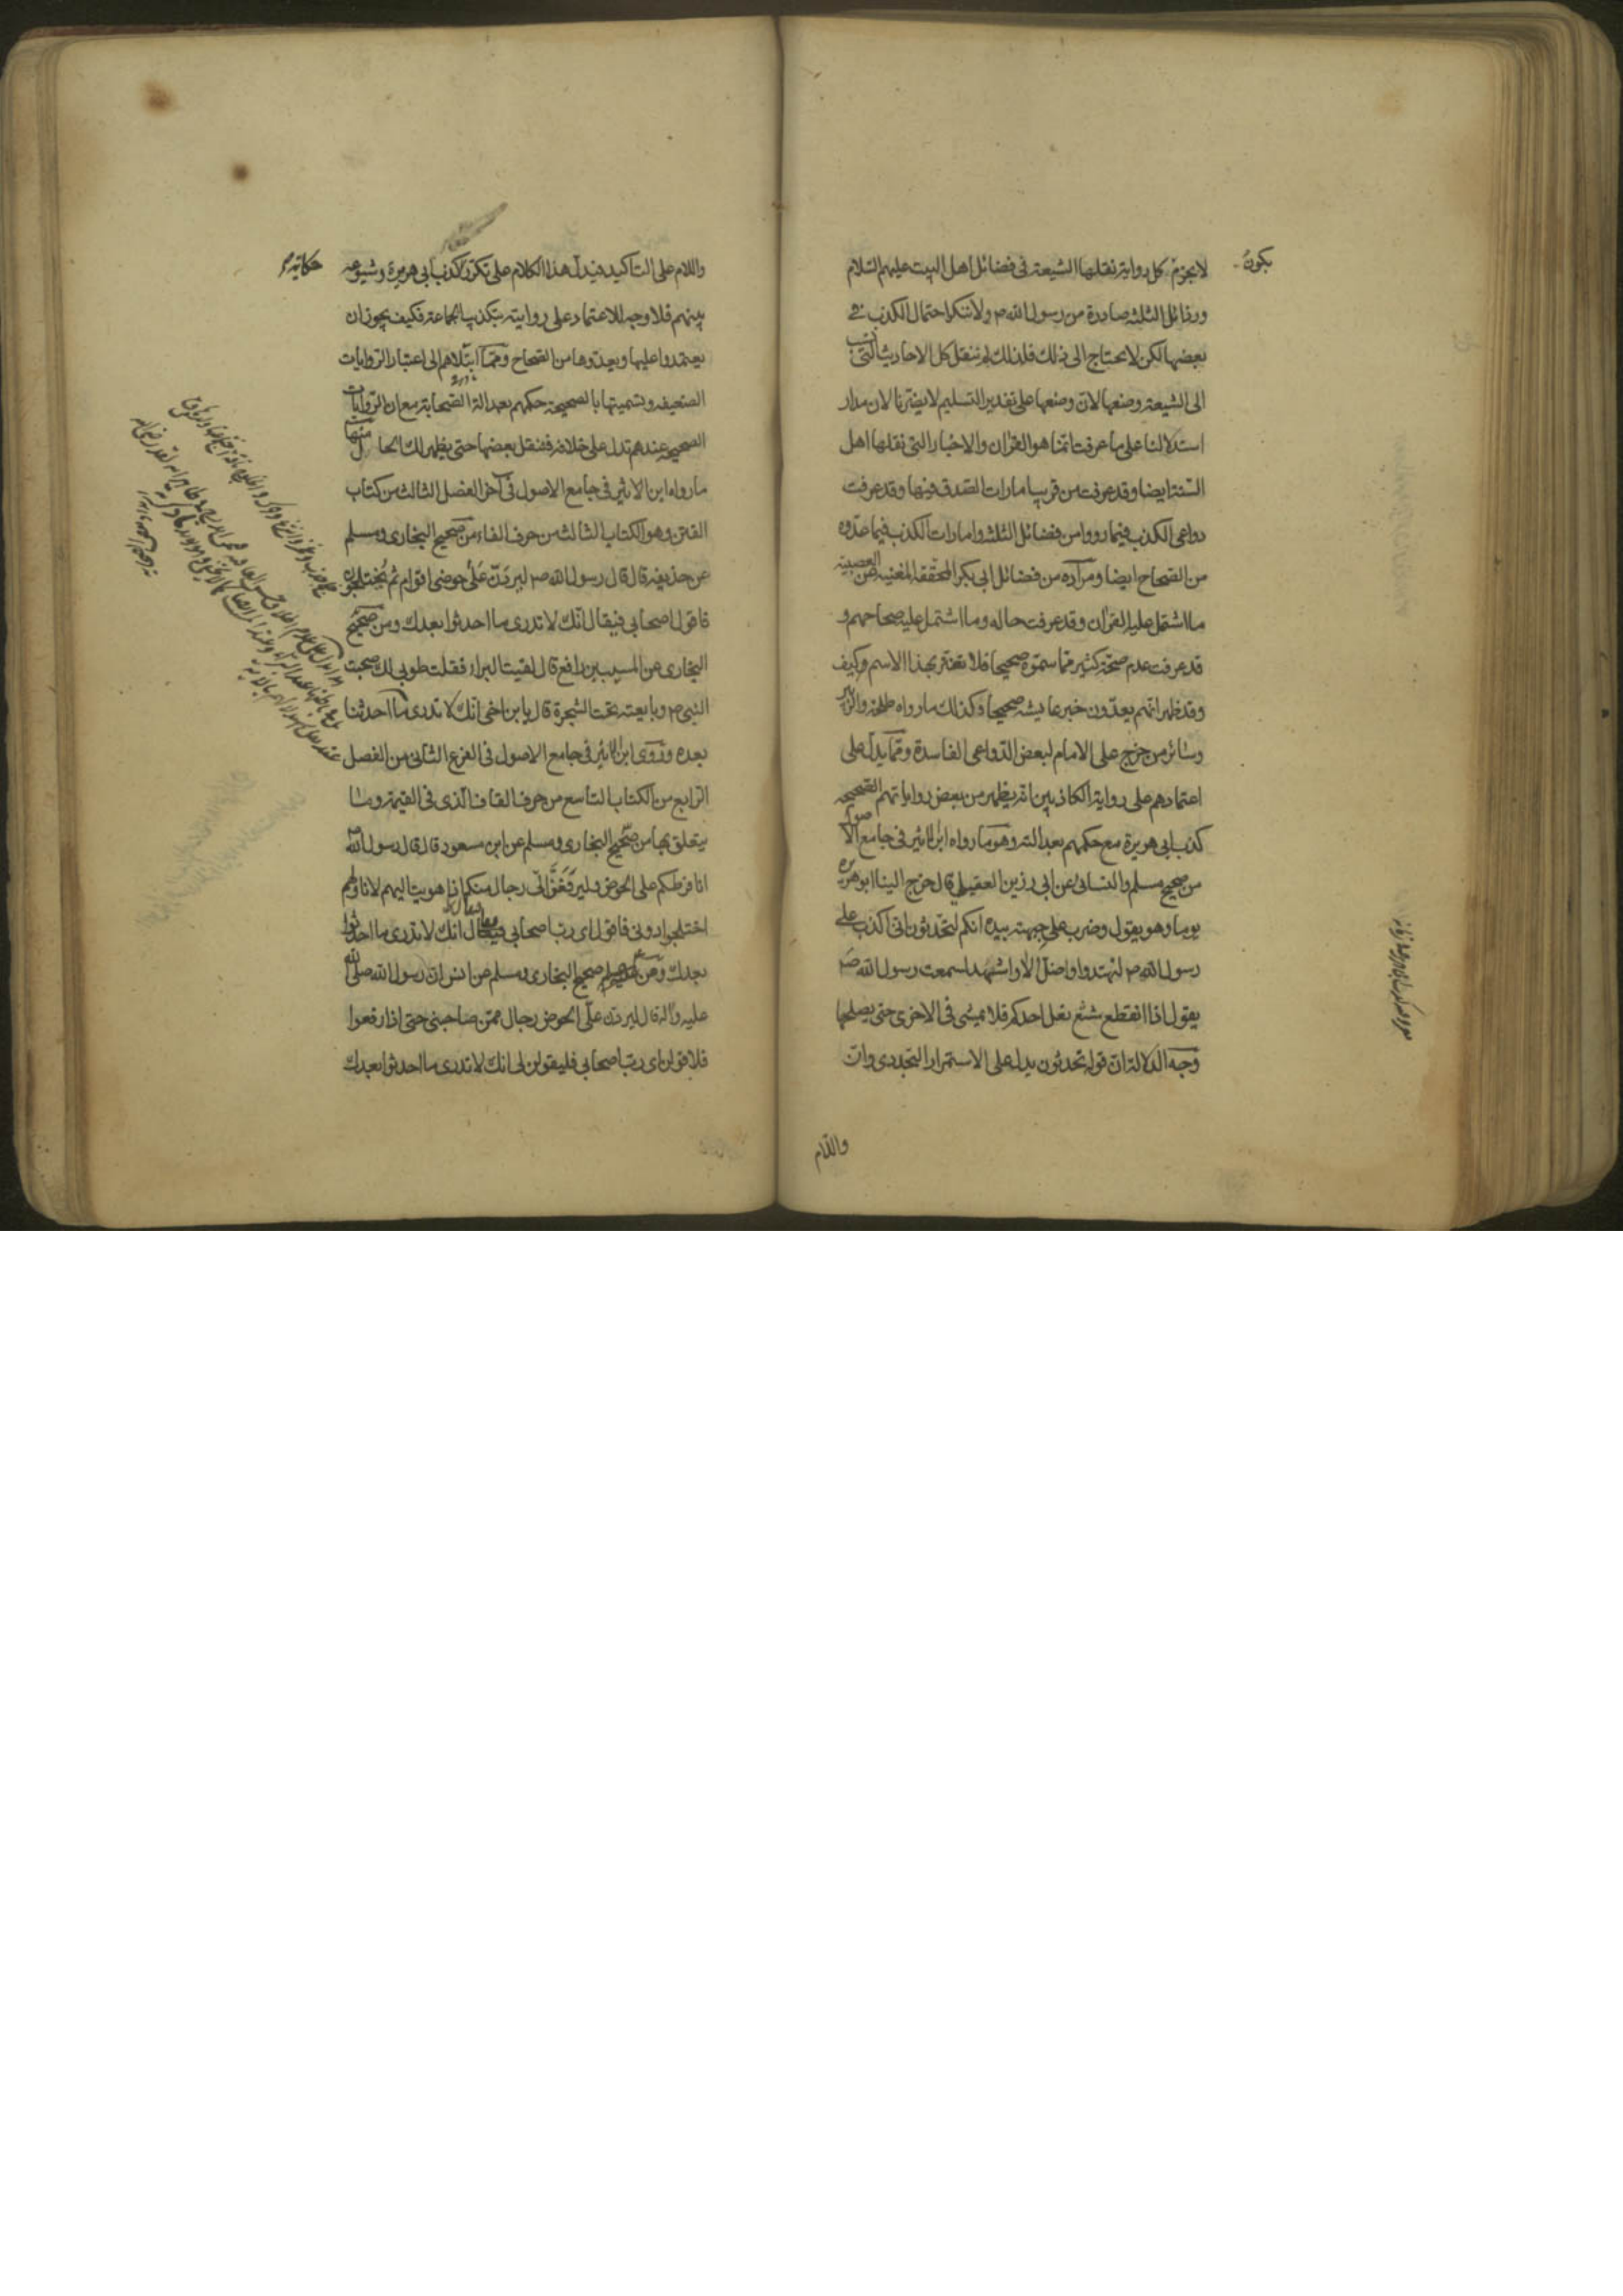 لا يجزم كل رواية نقلها الشيعة في فضائل اهل البيت عليهم السلام
يكون
ورذائل الثلثة صادرة من رسول الله ص ولا ننكر احتمال الكذب في
بعضها لكن لا يحتاج الى ذلك فلذلك لم ننقل كل الاحاديث التي
الى الشيعة وضعها لان وضعها على تقدير التسليم لا يضرنا لان مدار
استدلالنا على ما عرفت انما هو القران والاخبار التي نقلها اهل
السنة ايضا وقد عرفت من قريب امارات الصدق فيها وقد عرفت
دواعي الكذب فيما رووا من فضائل الثلثة وامارات الكذب فيما عدوه
من الصحاح ايضا ومن اراد من فضائل ابي بكر المحققة المغنية عن العصبية
ما اشتمل عليه القران وقد عرفت حاله وما اشتمل عليه صحاحهم و
قد عرفت عدم صحة كثير مما سموه صحيحا فلا تغتر بهذا الاسم وكيف
وقد ظهر انهم يعدون خبر عايشه صحيحا وكذلك ما رواه طلحة والزبير
وسائر من خرج على الامام لبعض الدواعي الفاسدة ومما يدل على
اعتمادهم على رواية الكاذبين انه يظهر من بعض رواياتهم الصحيحه
كذب ابي هريرة مع حكمهم بعدالته وهو ما رواه ابن الاثير في جامع الاصول
من صحيح مسلم والنسائى عن ابي رزين العقيلي قال خرج الينا ابو هريره
يوما وهو يقول وضرب على جبهته بيده انكم لتحدثون اني اكذب على
رسول الله ص لتهتدوا واضل الا واشهد لسمعت رسول الله ص
يقول اذا انقطع شسع نعل احدكم فلا يمشي في الاخرى حتى يصلحها
وجه الدلالة ان قوله تحدثون يدل على الاستمرار التجددى وان
واللام
واللام على التاكيد فيدل هذا الكلام على تكرر كذب ابي هريرة وشيوعه
حكايته
بينهم فلا وجه للاعتماد على روايته بتكذيب الجماعة فكيف يجوز ان
يعتمدوا عليها ويعدوها من الصحاح ومما ابتلاهم الى اعتبار الروايات
الضعيفه وتسميتها بالصحيحة حكمهم بعدالة الصحابة مع ان الروايات
الصحيحة عندهم تدل على خلافه فننقل بعضها حتى يظهر لك الحال منها
ما رواه ابن الاثير في جامع الاصول في آخر الفصل الثالث من كتاب
الفتن وهو الكتاب الثالث من حرف الفاء من صحيح البخارى ومسلم
عن حذيفة قال قال رسول الله ص ليردن على حوضي اقوام ثم يختلجون
فاقول اصحابي فيقال انك لا تدرى ما احدثوا بعدك ومن صحيح
البخارى عن المسيب بن رافع قال لقيت البراء فقلت طوبى لك صحبت
النبي ص وبايعته تحت الشجرة قال يابن اخي انك لا تدرى ما احدثنا
بعده وروى ابن الاثير في جامع الاصول في الفرع الثاني من الفصل
الرابع من الكتاب التاسع من حرف القاف الذى في القيمة وما
يتعلق بها من صحيح البخارى ومسلم عن ابن مسعود قال قال رسول الله
انا فرطكم على الحوض وليرفعن الى رجال منكم اذا هويت اليهم لاناولهم
اختلجوا دوني فاقول اى رب اصحابي فيقال انك لا تدرى ما احدثوا
بعدك ومن صحيح البخارى ومسلم عن انس ان رسول الله صلى الله
عليه واله قال ليردن على الحوض رجال ممن صاحبني حتى اذا رفعوا
فلاقولن اى رب اصحابي فليقولن لي انك لا تدرى ما احدثوا بعدك